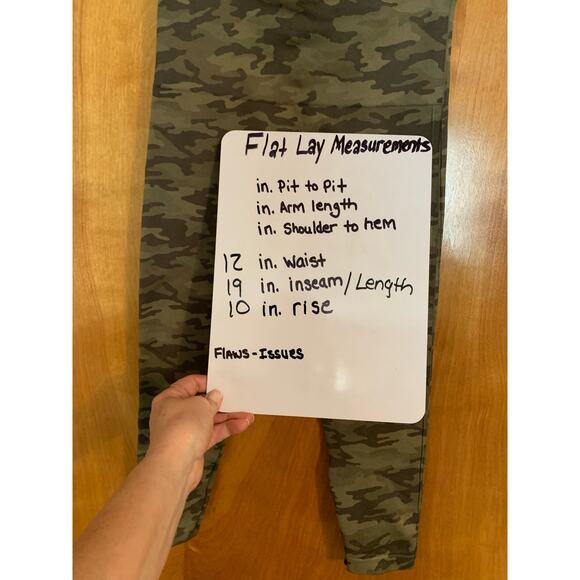 Flat Lay Measurements
in. Pit to Pit
in. Arm length
in. Shoulder to hem
12 in. Waist
19 in. inseam/Length
10 in. rise
Flaws - Issues